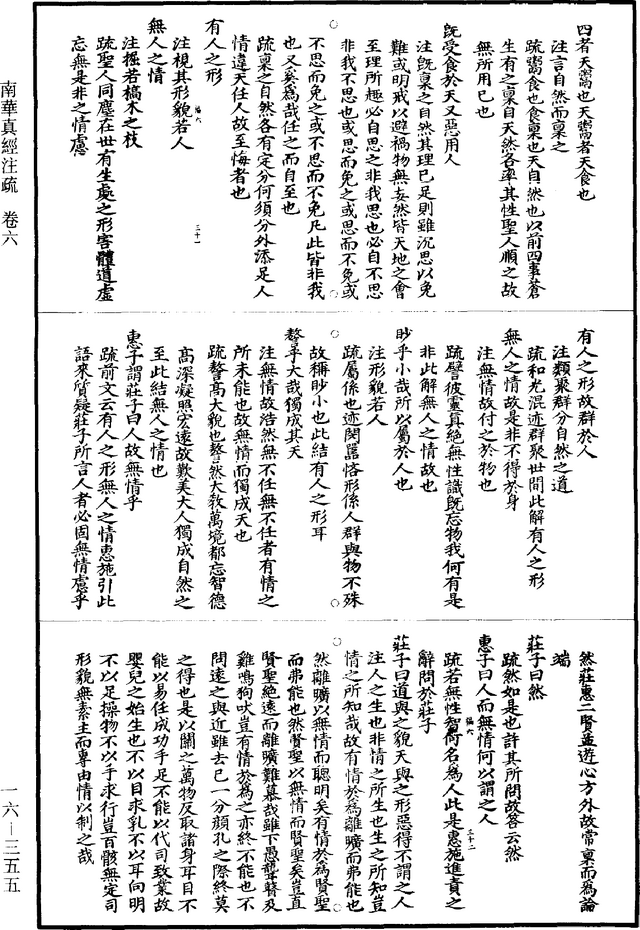 四者天鬻也天鬻者天食也
注言自然而稟之
疏鬻食也食稟也天自然也以前四事蒼
生有之稟自天然各率其性聖人順之故
無所用己也
既受食於天又惡用人
注既稟之自然其理已足則雖沉思以免
難或明戒以避禍物無妄然皆天地之會
至理所趣必自思之非我思也必自不思
非我不思也或思而免之或思而不免或
不思而免之或不思而不免凡此皆非我
也又奚為哉任之而自至也
疏稟之自然各有定分何須分外添足人
情違天任人故至悔者也
有人之形
注視其形貌若人
無人之情
注掘若槁木之枝
疏聖人同塵在世有生處之形容體道虛
忘無是非之情慮
有人之形故群於人
注類聚群分自然之道
疏和光混迹群聚世間此解有人之形
無人之情故是非不得於身
注無情故付之於物也
疏譬彼靈真絕無性識既忘物我何有是
非此解無人之情故也
眇乎小哉所以屬於人也
注形貌若人
疏屬係也迹閔囂悋形係人群與物不殊
故稱眇小也此結有人之形耳
謷乎大哉獨成其天
注無情故浩然無不任無不任者有情之
所未能也故無情而獨成天也
疏謷高大貌也謷然大教萬境都忘智德
高深凝照宏遠故歎美大人獨成自然之
至此結無人之情也
惠子謂莊子曰人故無情乎
疏前文云有人之形無人之情惠施引此
語來質疑莊子所言人者必固無情慮乎
然莊惠二賢並遊心方外故常稟而為論
端
莊子曰然
疏然如是也許其所問故答云然
惠子曰人而無情何以謂之人
疏若無性智何名為人此是惠施進責之
辭問於莊子
莊子曰道與之貌天與之形惡得不謂之人
注人之生也非情之所生也生之所知豈
情之所知哉故有情於為離曠而弗能也
然離曠以無情而聰明矣有情於為賢聖
而弗能也然賢聖以無情而賢聖矣豈直
賢聖絕遠而離曠難慕哉雖下愚聾瞽及
雞鳴狗吠豈有情於為之亦終不能也不
問遠之與近雖去己一分顏孔之際終莫
之得也是以關之萬物反取諸身耳目不
能以易任成功手足不能以代司致業故
嬰兒之始生也不以目求乳不以耳向明
不以足操物不以手求行豈百骸無定司
形貌無素主而專由情以制之哉
南華真經注疏 卷六
一六—三五五